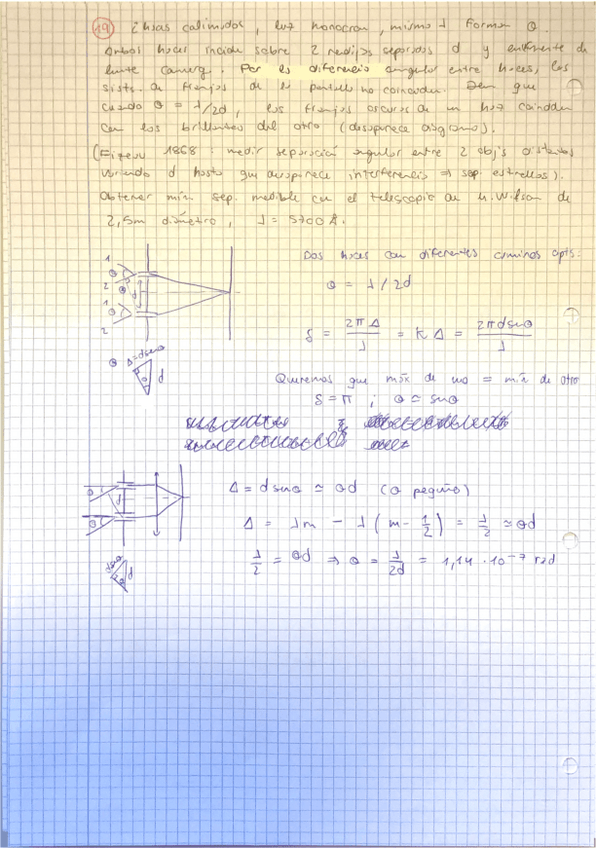 19 2 haces colimados, luz monocrom, mismo λ forman θ.
Ambos haces inciden sobre 2 rendijas separadas d y enfrente de
lente converg. Por la diferencia angular entre haces, los
sist. de franjas de la pantalla no coinciden. Dem que
cuando θ = λ/2d, las franjas oscuras de un haz coinciden
con las brillantes del otro (desaparece diagrama).
(Fizeau 1868: medir separación angular entre 2 objs distantes
variando d hasta que desaparece interferencia ⇒ sep. estrellas).
Obtener mín sep. medible con el telescopio de M. Wilson de
2,5m diámetro, λ = 5700 Å.
Dos haces con diferentes caminos ópts:
θ = λ/2d
δ = 2πΔ/λ = KΔ = 2πd senθ/λ
1
θ
2
θ
d
1
θ
2
θ Δ=dsenθ
θ d
Queremos que máx de uno = mín de otro
δ = π ; θ ≃ senθ
Δ = d senθ ≃ θd (θ pequeño)
Δ = λm - λ(m - 1/2) = λ/2 ≃ θd
λ/2 = θd ⇒ θ = λ/2d = 1,14 · 10⁻⁷ rad
θ
d
θ
dsenθ
θ d